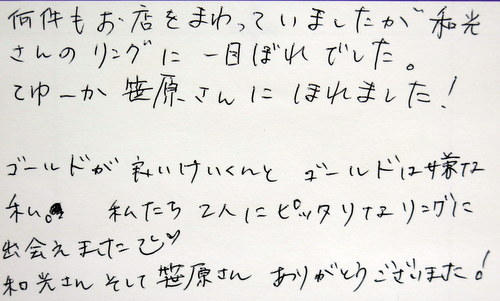 何件もお店をまわっていましたが 和光
さんのリングに一目ぼれでした。
てゆーか 笹原さんに ほれました!
ゴールドが良いけいくんと ゴールドは嫌な
私。 私たち2人にピッタリなリングに
出会えました
和光さん そして 笹原さん ありがとうございました!